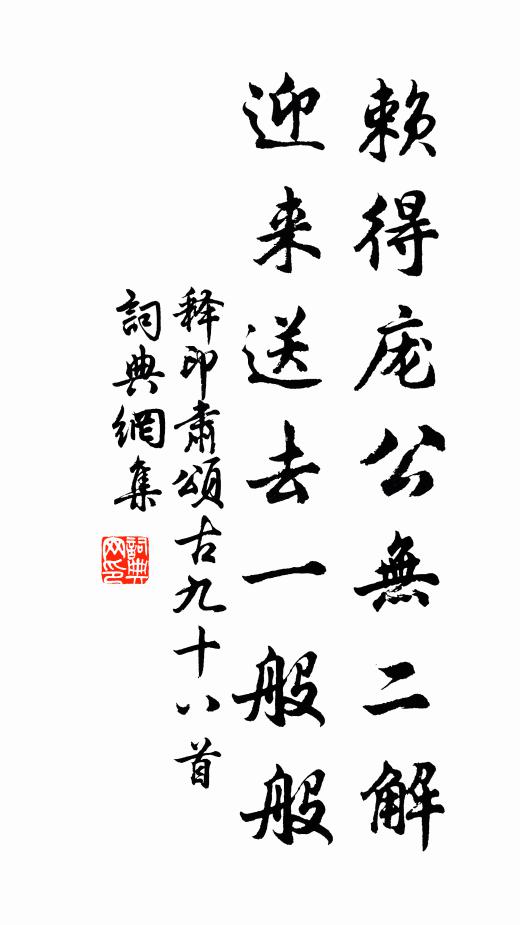 赖得庞公無二解
迎来送去一般般
释印肃頌古九十八首
詞典網集
詞典網印